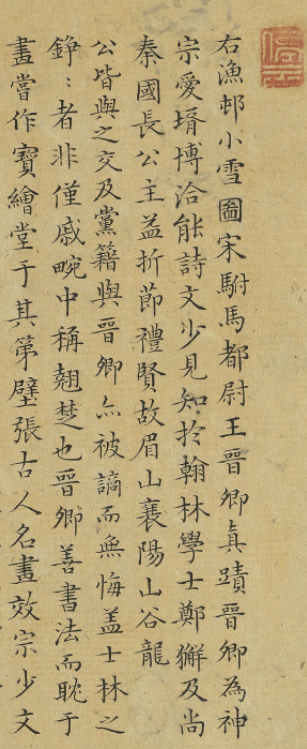 右漁邨小雪圖宋駙馬都尉王晉卿真蹟晉卿為神
宗愛壻博洽能詩文少見知於翰林學士鄭獬及尚
秦國長公主益折節禮賢故眉山襄陽山谷龍
公皆與之交及黨籍與晉卿亦被謫而無悔盖士林之
錚〻者非僅戚畹中稱翹楚也晉卿善書法而耽于
畫嘗作寶繪堂于其第壁張古人名畫效宗少文